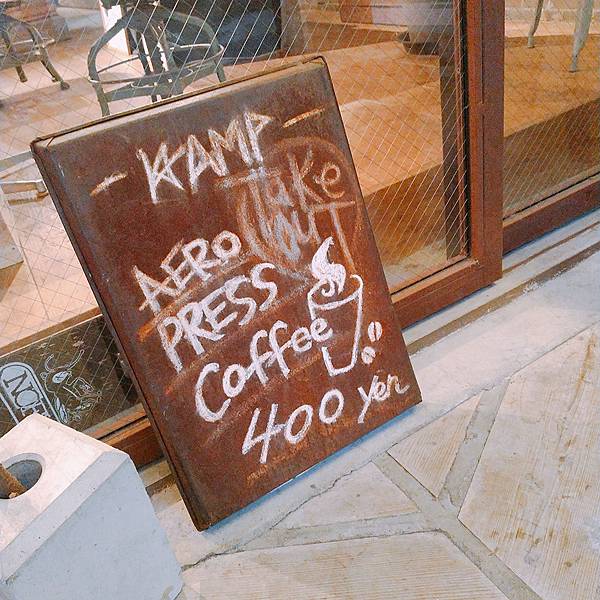 - KAMP -
Take
OUT
AERO
PRESS
Coffee
400 yen